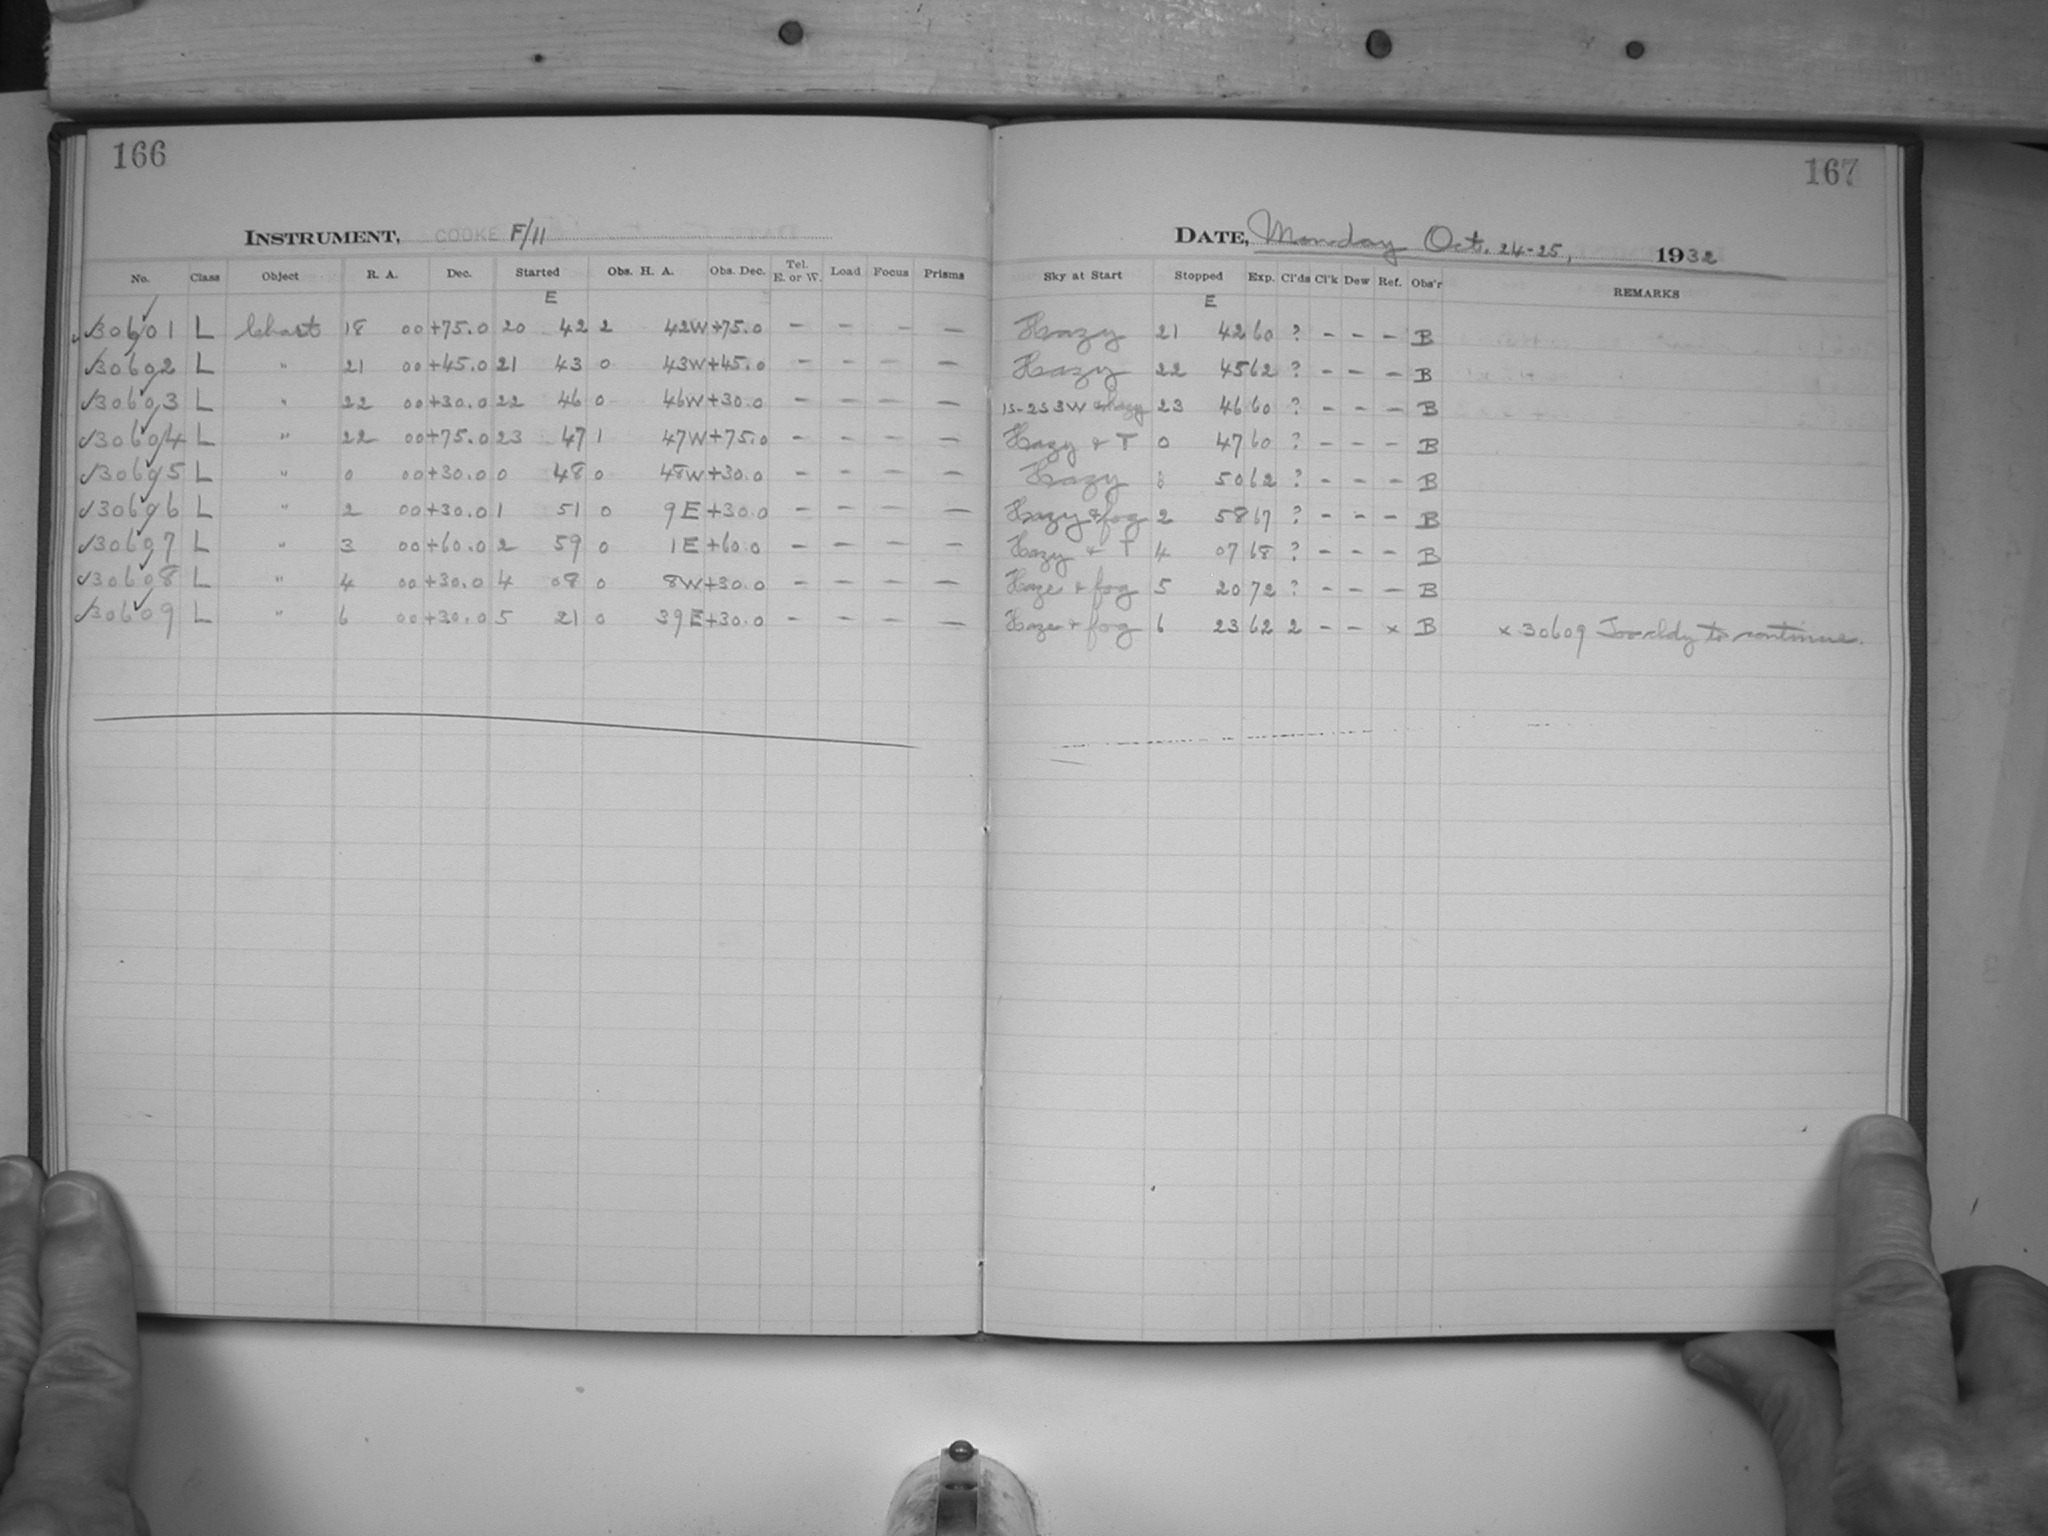 166
INSTRUMENT, COOKE F/11
No. Class Object R. A. Dec. Started Obs. H. A. Obs. Dec. Tel. E. or W. Load Focus Prisms
E
✓30601 L Chart 18 00 +75.0 20 42 2 42W +75.0 – – – –
✓30602 L " 21 00 +45.0 21 43 0 43W +45.0 – – – –
✓30603 L " 22 00 +30.0 22 46 0 46W +30.0 – – – –
✓30604 L " 22 00 +75.0 23 47 1 47W +75.0 – – – –
✓30605 L " 0 00 +30.0 0 48 0 48W +30.0 – – – –
✓30606 L " 2 00 +30.0 1 51 0 9E +30.0 – – – –
✓30607 L " 3 00 +60.0 2 59 0 1E +60.0 – – – –
✓30608 L " 4 00 +30.0 4 08 0 8W +30.0 – – – –
✓30609 L " 6 00 +30.0 5 21 0 39E +30.0 – – – –
167
DATE, Monday Oct. 24-25, 1932
Sky at Start Stopped Exp. Cl'ds Cl'k Dew Ref. Obs'r REMARKS
E
Hazy 21 42 60 ? – – – B
Hazy 22 45 62 ? – – – B
15-25 3W hazy 23 46 60 ? – – – B
Hazy & T 0 47 60 ? – – – B
Hazy 50 62 ? – – – B
Hazy & fog 2 58 67 ? – – – B
Hazy & T 4 07 68 ? – – – B
Haze & fog 5 20 72 ? – – – B
Haze & fog 6 23 62 2 – – x B x 30609 Too cldy to continue.